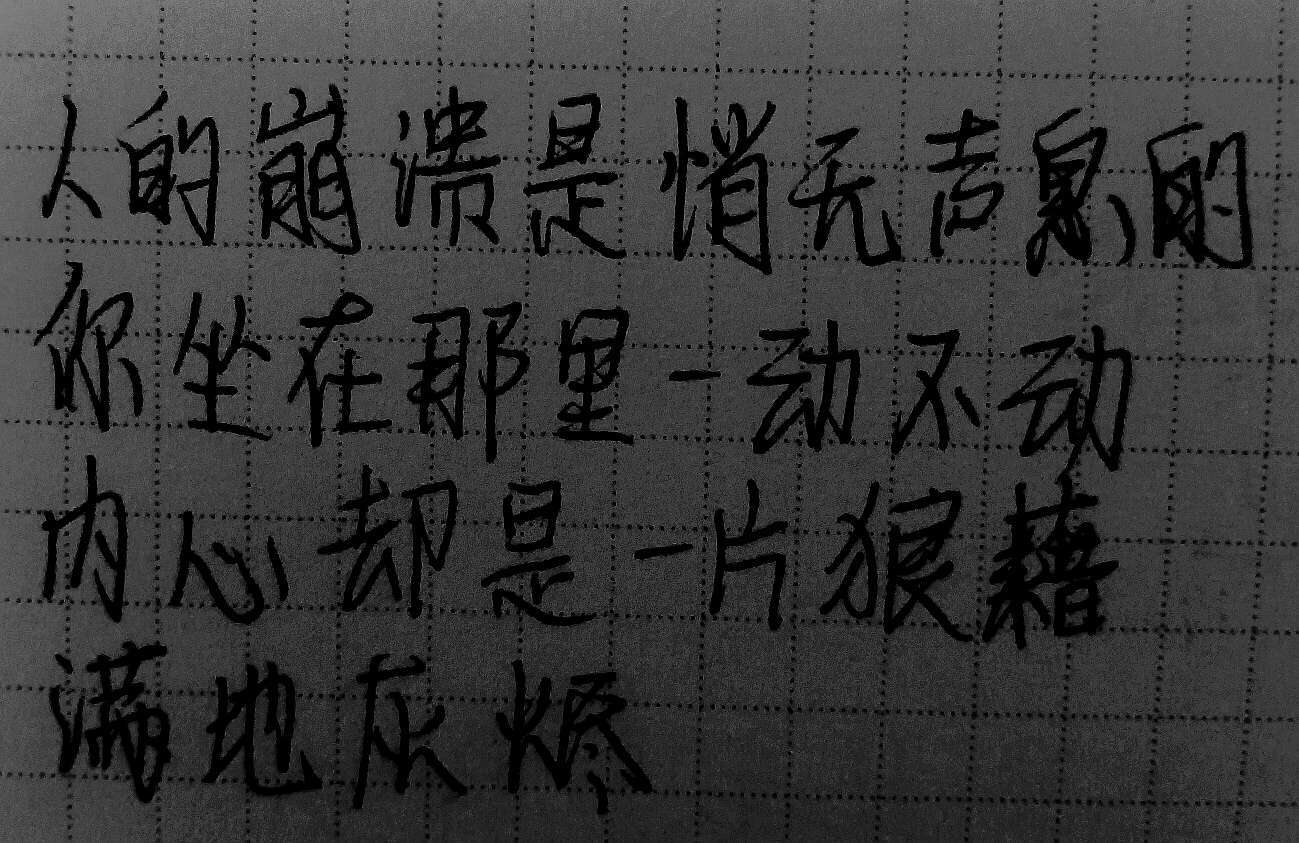 人的崩溃是悄无声息的
你坐在那里一动不动
内心却是一片狼藉
满地灰烬